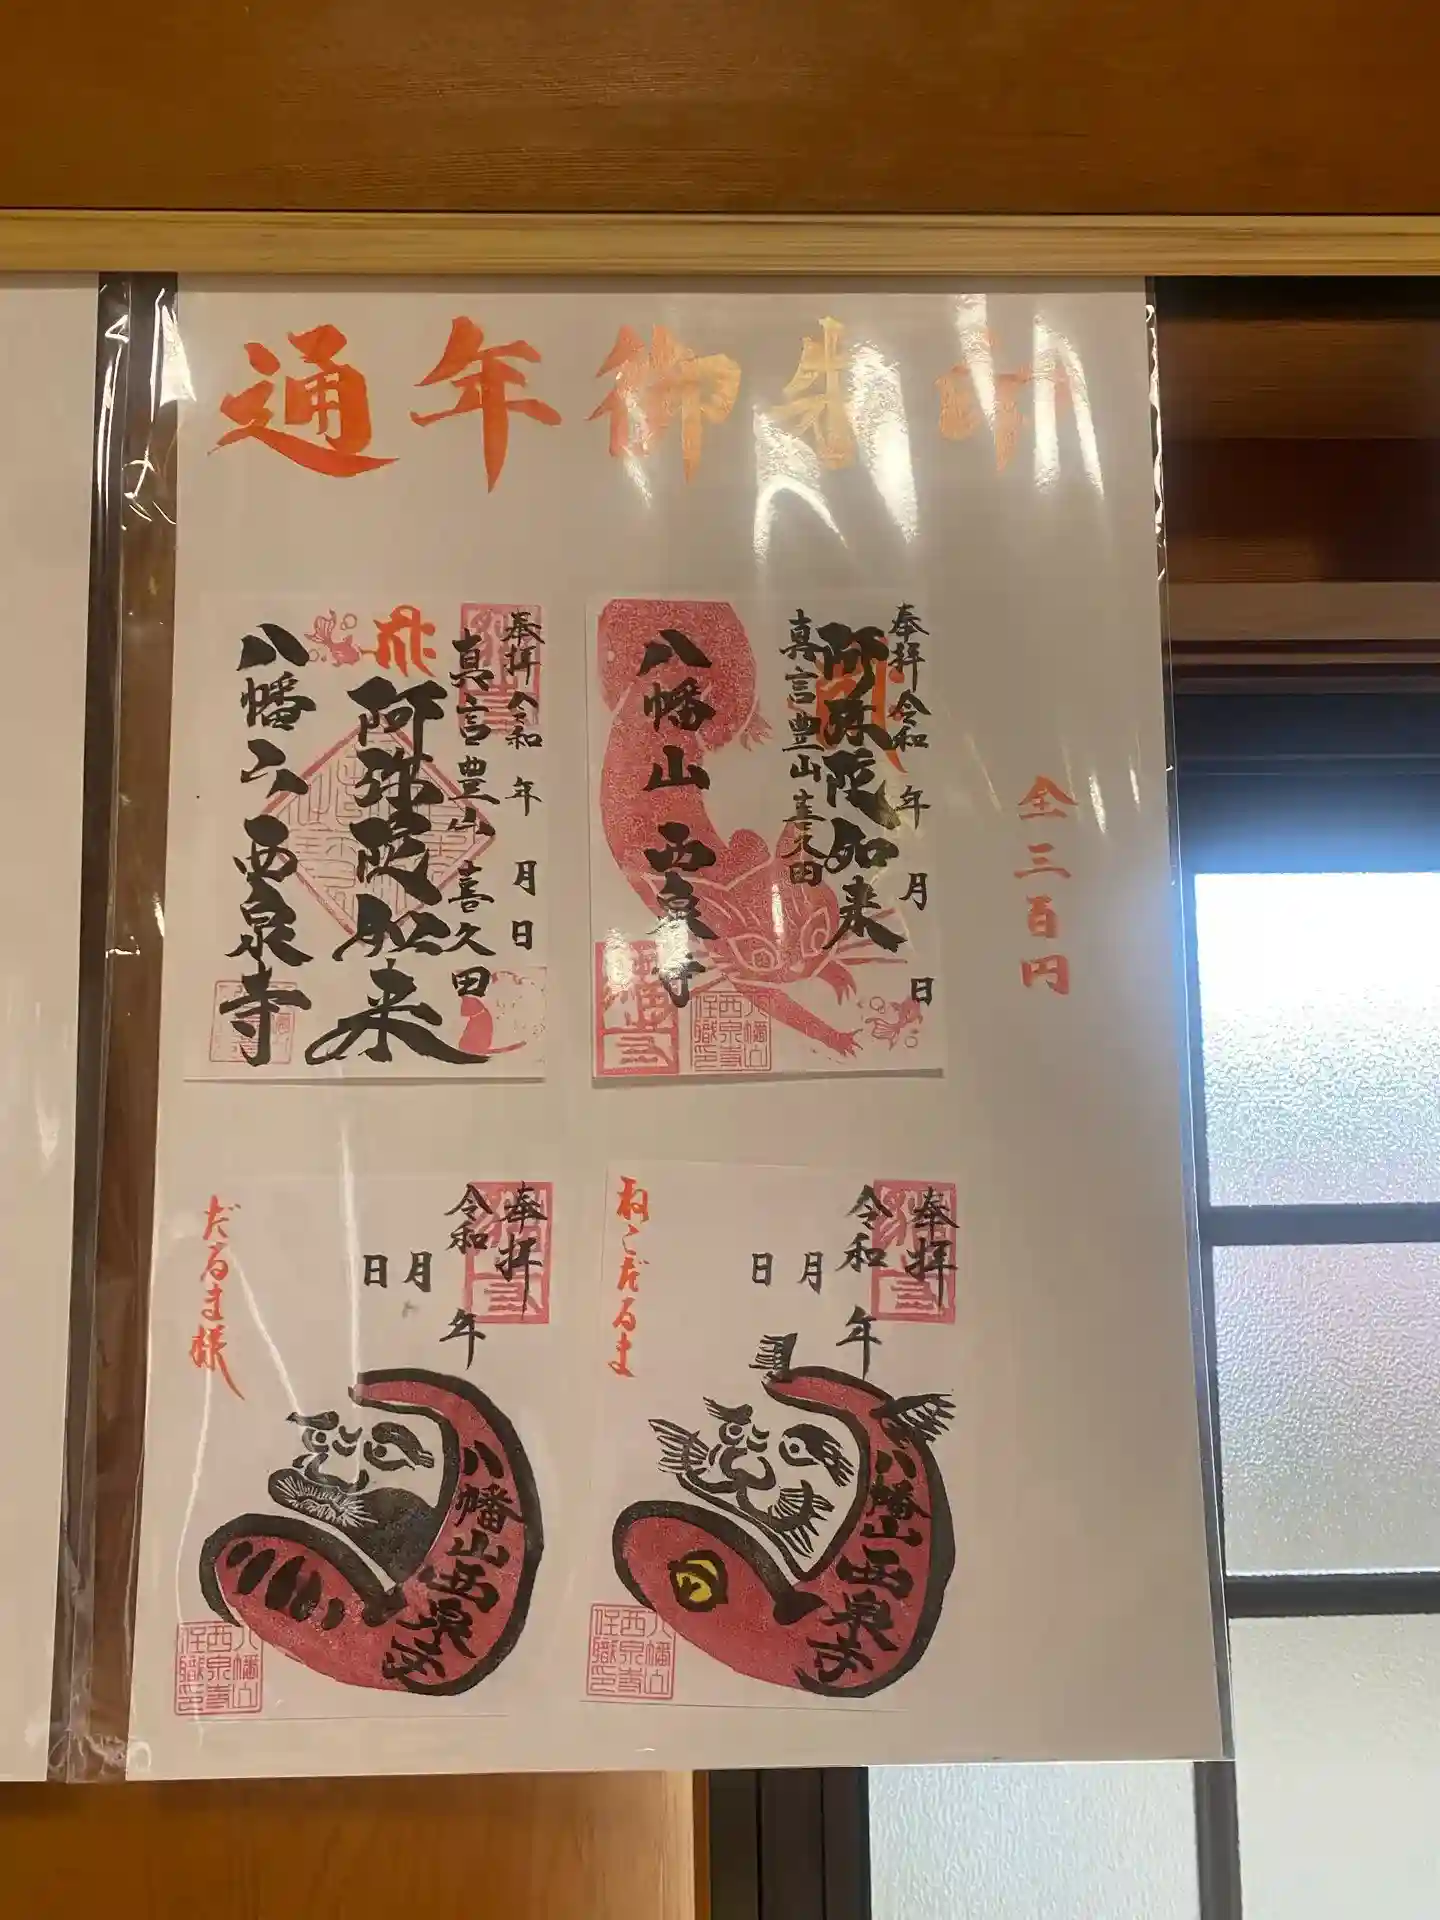 通年御朱印
全三百円
奉拝 令和 年 月 日
阿弥陀如来
真言豊山 喜久田
八幡山 西泉寺
八幡山
西泉寺
住職印
奉拝 令和 年 月 日
真言豊山 喜久田
弥
阿弥陀如来
八幡山 西泉寺
奉拝
令和 年
月
日
ねこだるま
八幡山西泉寺
八幡山
西泉寺
住職印
奉拝
令和 年
月
日
だるま様
八幡山西泉寺
八幡山
西泉寺
住職印